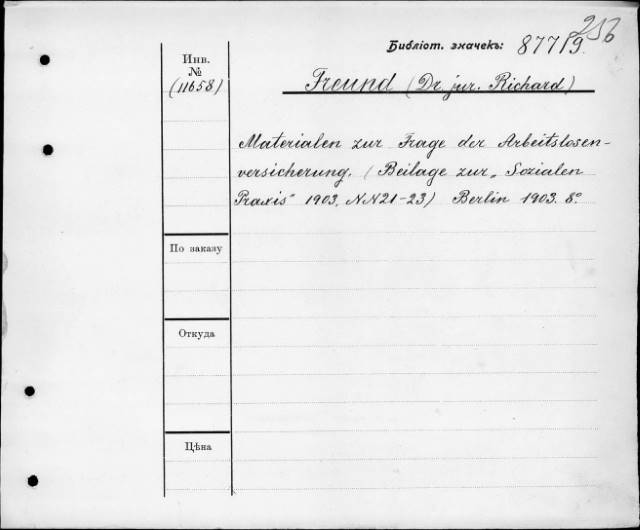 256
Библіот. значекъ: 87719.
Инв.
№
(11658)
Freund (Dr. jur. Richard)
Materialen zur Frage der Arbeitslosen-
versicherung. (Beilage zur „Sozialen
Praxis" 1903. NN21-23) Berlin 1903. 8°
По заказу
Откуда
Цѣна